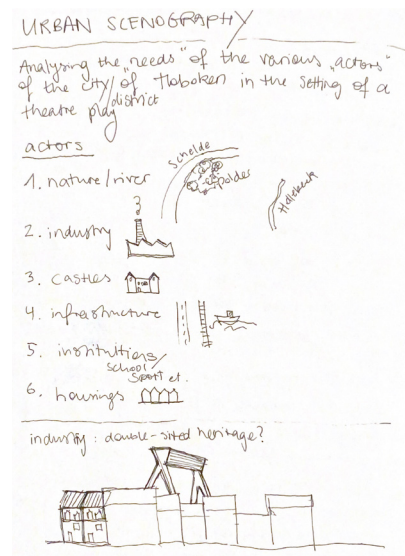 URBAN SCENOGRAPHY
Analysing the „needs" of the various „actors"
of the city/district of Hoboken in the setting of a
theatre play
actors
Schelde
1. nature/river
Polder
2. industry
3. castles
4. infrastructure
5. institutions/
school/
sport et.
6. housings
industry: double-sited heritage?